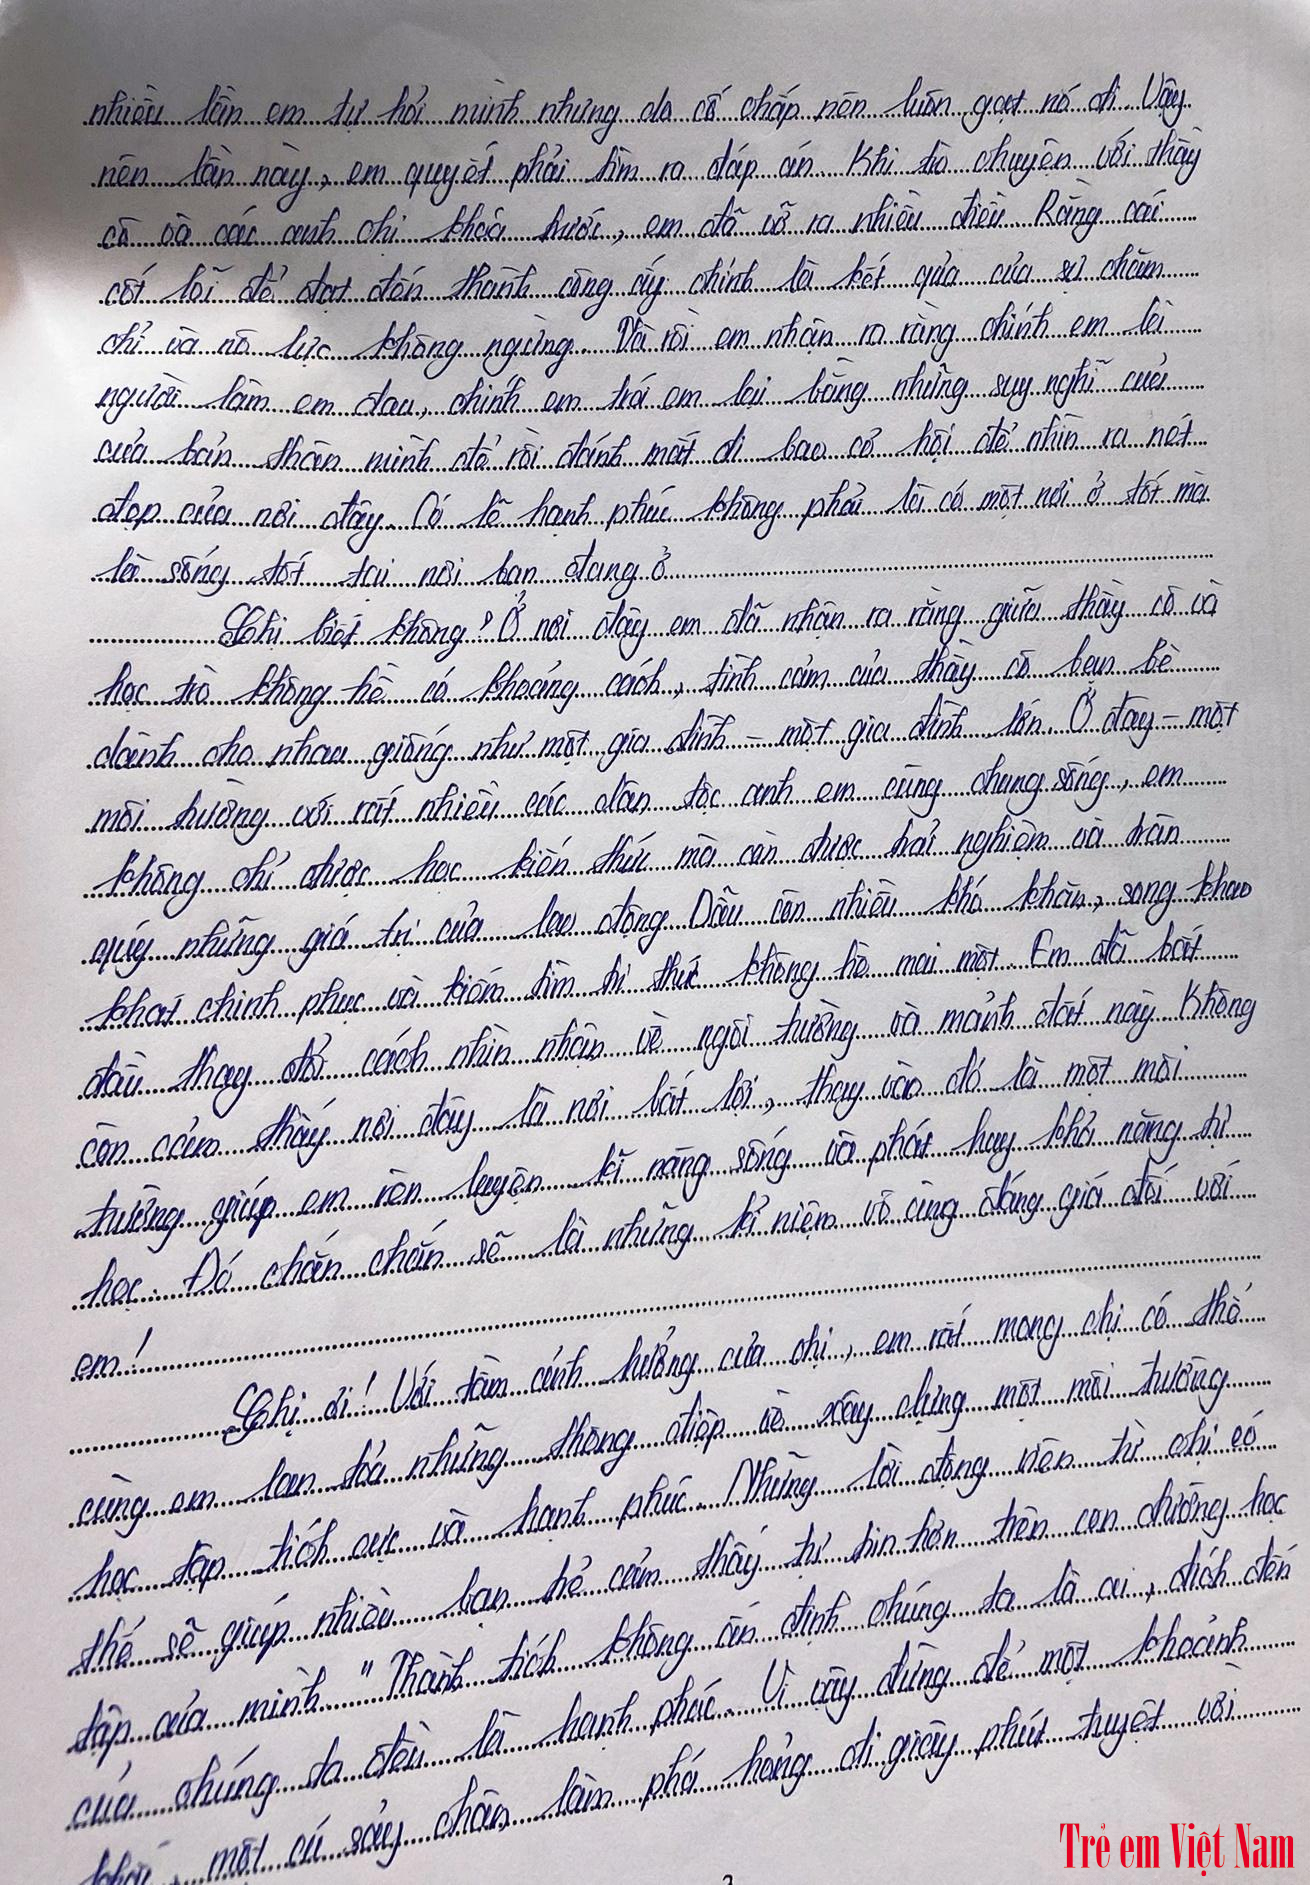 nhiều lần em tự hỏi mình nhưng do cố chấp nên luôn gạt nó đi. Vậy
nên lần này, em quyết phải tìm ra đáp án. Khi trò chuyện với thầy
cô và các anh chị khóa trước, em đã vỡ ra nhiều điều. Rằng cái
cốt lõi để đạt đến thành công ấy chính là kết quả của sự chăm
chỉ và nỗ lực không ngừng. Và rồi em nhận ra rằng chính em là
người làm em đau, chính em trói em lại bằng những suy nghĩ của
của bản thân mình để rồi đánh mất đi bao cơ hội để nhìn ra nét
đẹp của nơi đây. Có lẽ hạnh phúc không phải là có một nơi ở tốt mà
là sống tốt tại nơi bạn đang ở
Chị biết không? Ở nơi đây em đã nhận ra rằng giữa thầy cô và
học trò không hề có khoảng cách, tình cảm của thầy cô bạn bè
dành cho nhau giống như một gia đình – một gia đình lớn. Ở đây – một
môi trường với rất nhiều các dân tộc anh em cùng chung sống, em
không chỉ được học kiến thức mà còn được trải nghiệm và trân
quý những giá trị của lao động. Dẫu còn nhiều khó khăn, song khao
khát chinh phục và kiếm tìm tri thức không hề mai một. Em đã bắt
đầu thay đổi cách nhìn nhận về ngôi trường và mảnh đất này. Không
còn cảm thấy nơi đây là nơi bất lợi, thay vào đó là một môi
trường giúp em rèn luyện kĩ năng sống và phát huy khả năng tự
học. Đó chắn chắn sẽ là những kỉ niệm vô cùng đáng giá đối với
em!
Chị ơi! Với tầm ảnh hưởng của chị, em rất mong chị có thể
cùng em lan tỏa những thông điệp về xây dựng một môi trường
học tập tích cực và hạnh phúc. Những lời động viên từ chị có
thể sẽ giúp nhiều bạn trẻ cảm thấy tự tin hơn trên con đường học
tập của mình "Thành tích không ấn định chúng ta là ai, đích đến
của chúng ta đều là hạnh phúc. Vì vậy đừng để một khoảnh
một cú sảy chân làm phá hỏng đi giây phút tuyệt vời
Trẻ em Việt Nam